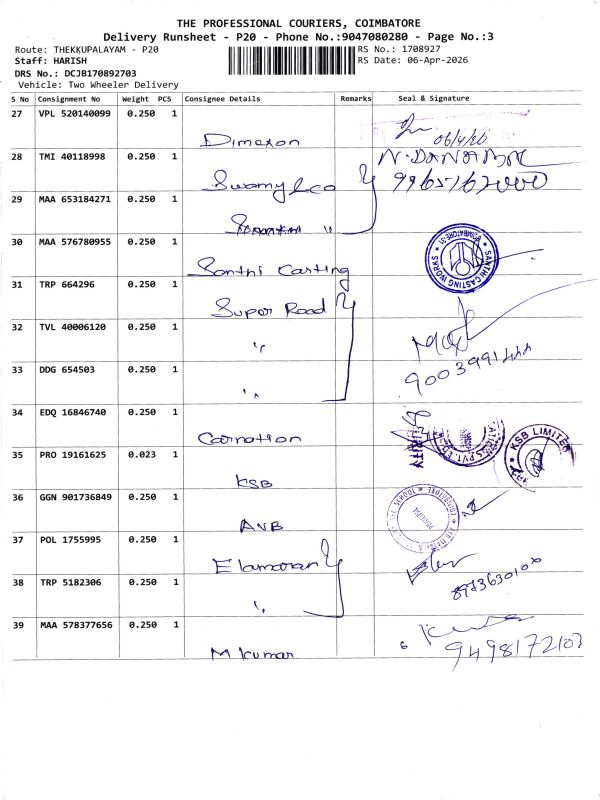 THE PROFESSIONAL COURIERS, COIMBATORE
Delivery Runsheet - P20 - Phone No.:9047080280 - Page No.:3
Route: THEKKUPALAYAM - P20 RS No.: 1708927
Staff: HARISH RS Date: 06-Apr-2026
DRS No.: DCJB170892703
Vehicle: Two Wheeler Delivery
S No Consignment No Weight PCS Consignee Details Remarks Seal & Signature
27 VPL 520140099 0.250 1 Dimexon 06/4/26
28 TMI 40118998 0.250 1 Swamy & co N. DANABAL
29 MAA 653184271 0.250 1 "
30 MAA 576780955 0.250 1 Santhi Casting SANTHI CASTING WORKS COIMBATORE-31
31 TRP 664296 0.250 1 Super Road
32 TVL 40006120 0.250 1 "
33 DDG 654503 0.250 1 " 9003991444
34 EDQ 16846740 0.250 1 Carnation
35 PRO 19161625 0.023 1 KSB KSB LIMITED
36 GGN 901736849 0.250 1 AVB PRINCIPAL
37 POL 1755995 0.250 1 Elamaran
38 TRP 5182306 0.250 1 "
39 MAA 578377656 0.250 1 M Kumar 9498172103